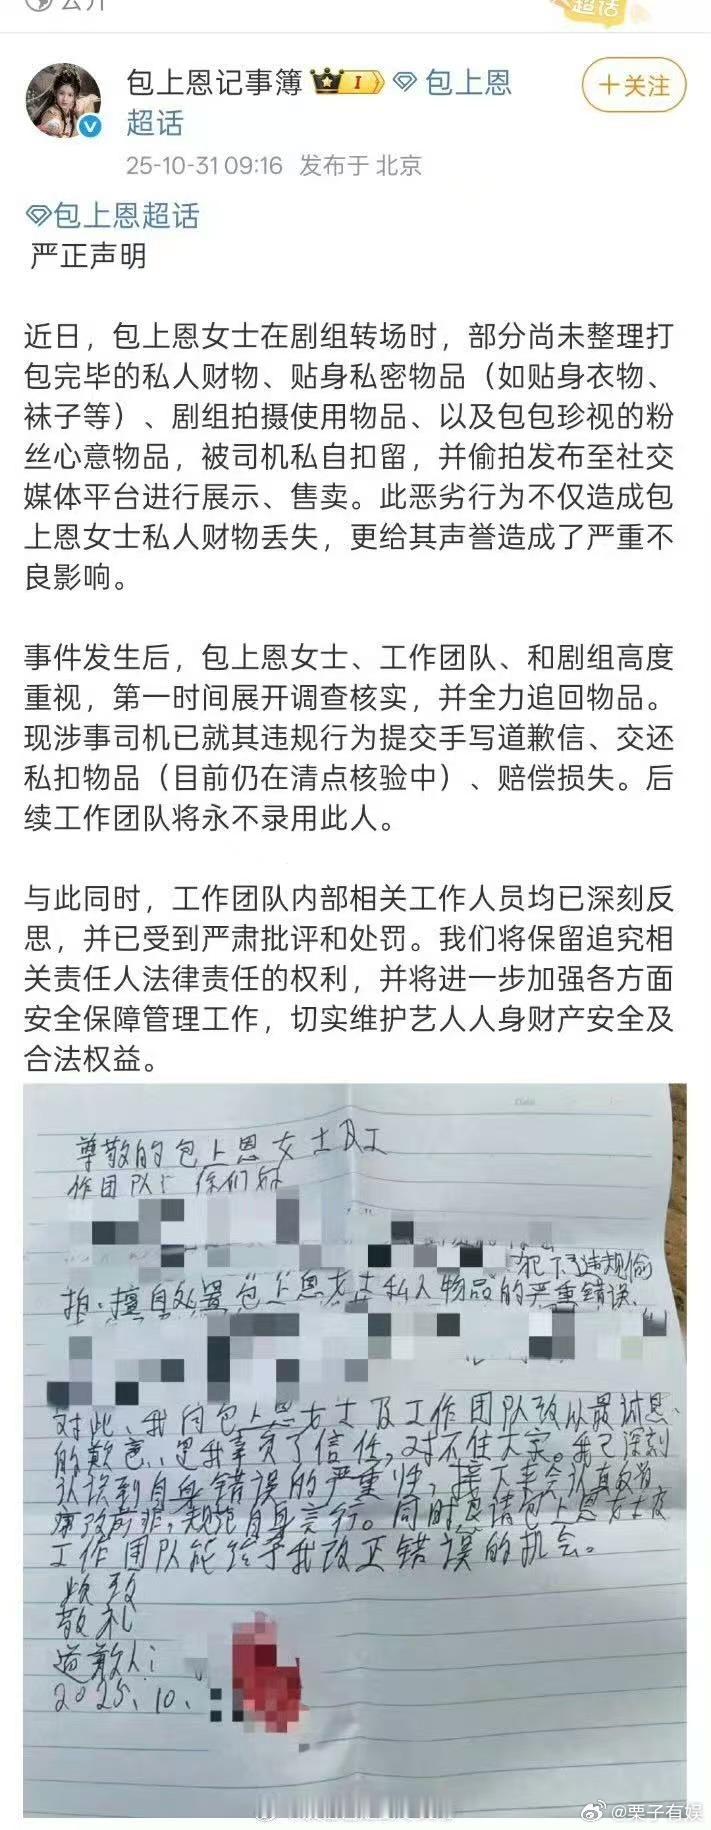 公开
超话
包上恩记事簿 I 包上恩
超话
+关注
25-10-31 09:16 发布于 北京
包上恩超话
严正声明
近日，包上恩女士在剧组转场时，部分尚未整理打
包完毕的私人财物、贴身私密物品（如贴身衣物、
袜子等）、剧组拍摄使用物品、以及包包珍视的粉
丝心意物品，被司机私自扣留，并偷拍发布至社交
媒体平台进行展示、售卖。此恶劣行为不仅造成包
上恩女士私人财物丢失，更给其声誉造成了严重不
良影响。
事件发生后，包上恩女士、工作团队、和剧组高度
重视，第一时间展开调查核实，并全力追回物品。
现涉事司机已就其违规行为提交手写道歉信、交还
私扣物品（目前仍在清点核验中）、赔偿损失。后
续工作团队将永不录用此人。
与此同时，工作团队内部相关工作人员均已深刻反
思，并已受到严肃批评和处罚。我们将保留追究相
关责任人法律责任的权利，并将进一步加强各方面
安全保障管理工作，切实维护艺人人身财产安全及
合法权益。
尊敬的包上恩女士及工
作团队：你们好
犯下违规偷
拍、擅自处置包上恩女士私人物品的严重错误、
对此、我向包上恩女士及工作团队致以最诚恳
的歉意、是我辜负了信任，对不住大家。我已深刻
认识到自身错误的严重性，接下来会认真反省
痛改前非，规范自身言行。同时恳请包上恩女士及
工作团队能给予我改正错误的机会。
敬礼
道歉人：
2025、10、
@栗子有娱